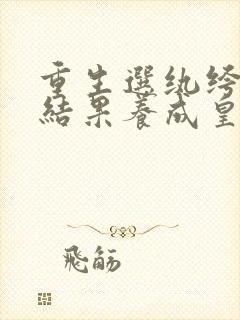 重生選紈绔
結果養成皇
飛觞